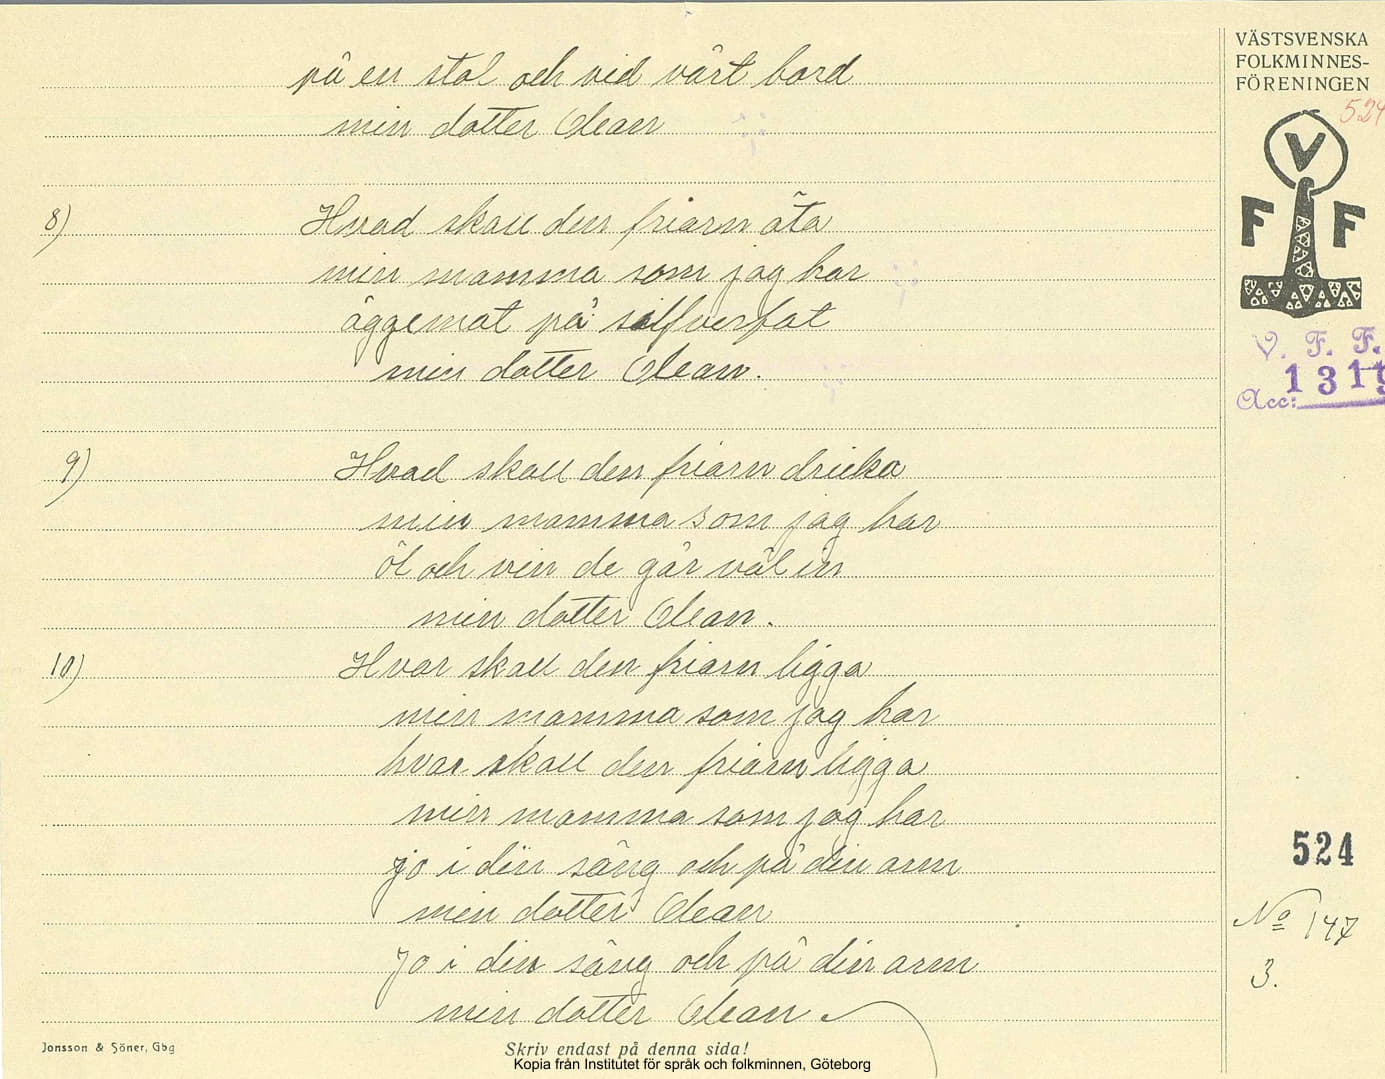 på en stol och vid vårt bord
min dotter Clean
8)
Hvad skall den friarn äta
min mamma som jag har
äggemat på silfverfat
min dotter Clean.
9)
Hvad skall den friarn dricka
min mamma som jag har
öl och vin de går väl in
min dotter Clean.
10)
Hvar skall den friarn ligga
min mamma som jag har
hvar skall den friarn ligga
min mamma som jag har
jo i din säng och på din arm
min dotter Clean
Jo i din säng och på din arm
min dotter Clean
Jonsson & Söner, Gbg
Skriv endast på denna sida!
Kopia från Institutet för språk och folkminnen, Göteborg
VÄSTSVENSKA
FOLKMINNES-
FÖRENINGEN
524
V
F F
V. F. F.
Acc: 1319
524
No 147
3.